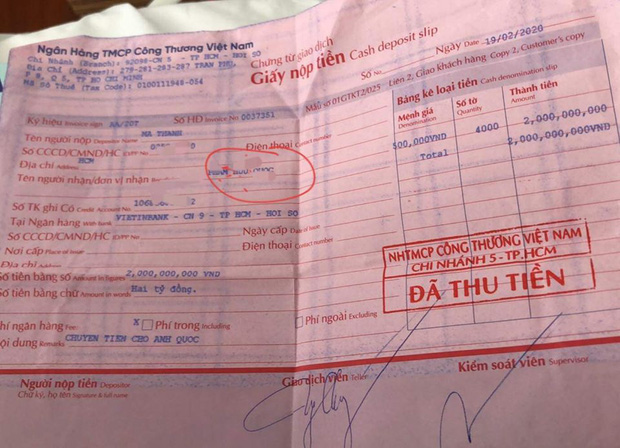 Ngân Hàng TMCP Công Thương Việt Nam
Chi Nhánh (Branch): 92098-CN 5 - TP HCM - HOI SO
Địa Chỉ (Address): 279-281-283-287 TRAN PHU,
P 8, Q5, TP HO CHI MINH
Mã Số Thuế (Tax Code): 0100111948-054
Chứng từ giao dịch
Giấy nộp tiền Cash deposit slip
Ngày Date 19/02/2020
Số No
Mẫu số 01GTKT2/025 Liên 2, Giao khách hàng Copy 2, Customer's copy
Ký hiệu Invoice sign AA/20T Số HĐ Invoice No 0037351
Tên người nộp Depositor Name MA THANH
Số CCCD/CMND/HC ID/PP No 0 0 Điện thoại Contact number
Địa chỉ Address HCM
Tên người nhận/đơn vị nhận QUOC
Số TK ghi Có Credit Account No 106 2
Tại Ngân hàng With Bank VIETINBANK - CN 9 - TP HCM - HOI SO
Số CCCD/CMND/HC ID/PP No Ngày cấp Date of Issue
Nơi cấp Place of Issue Điện thoại Contact number
Địa chỉ Address
Số tiền bằng số Amount in figures 2,000,000,000 VND
Số tiền bằng chữ Amount in words Hai tỷ đồng.
Phí ngân hàng Fee: X Phí trong Including Phí ngoài Excluding
Nội dung Remarks CHUYEN TIEN CHO ANH QUOC
Bảng kê loại tiền Cash denomination slip
Mệnh giá Số tờ Thành tiền
Denomination Quantity Amount
500,000VND 4000 2,000,000,000
Total 2,000,000,000VND
NHTMCP CÔNG THƯƠNG VIỆT NAM
CHI NHÁNH 5 - TP.HCM
ĐÃ THU TIỀN
Người nộp tiền Depositor Giao dịch viên Teller Kiểm soát viên Supervisor
Chữ ký, họ tên Signature & full name